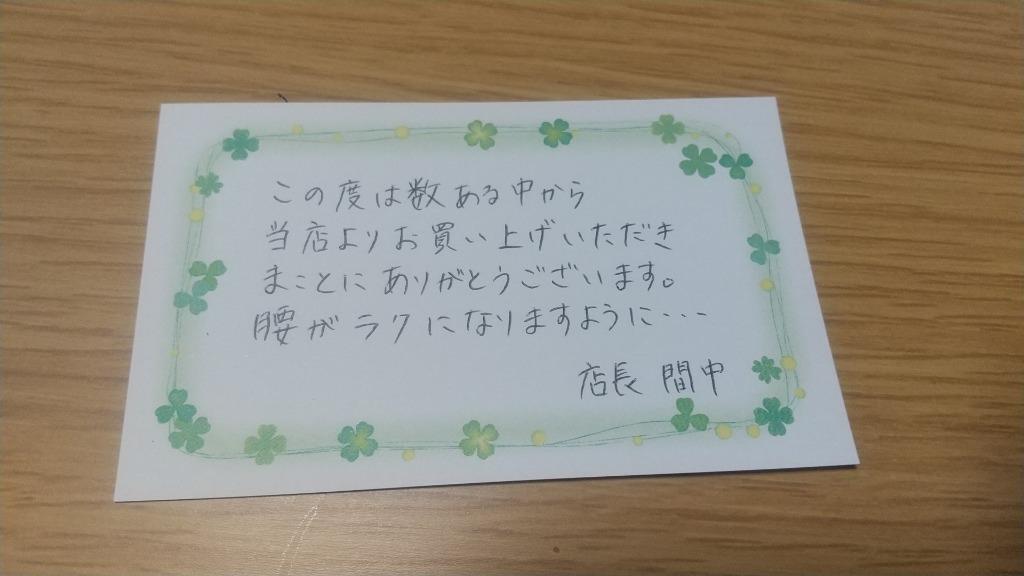 この度は数ある中から
当店よりお買い上げいただき
まことにありがとうございます。
腰がラクになりますように・・・
店長 間中